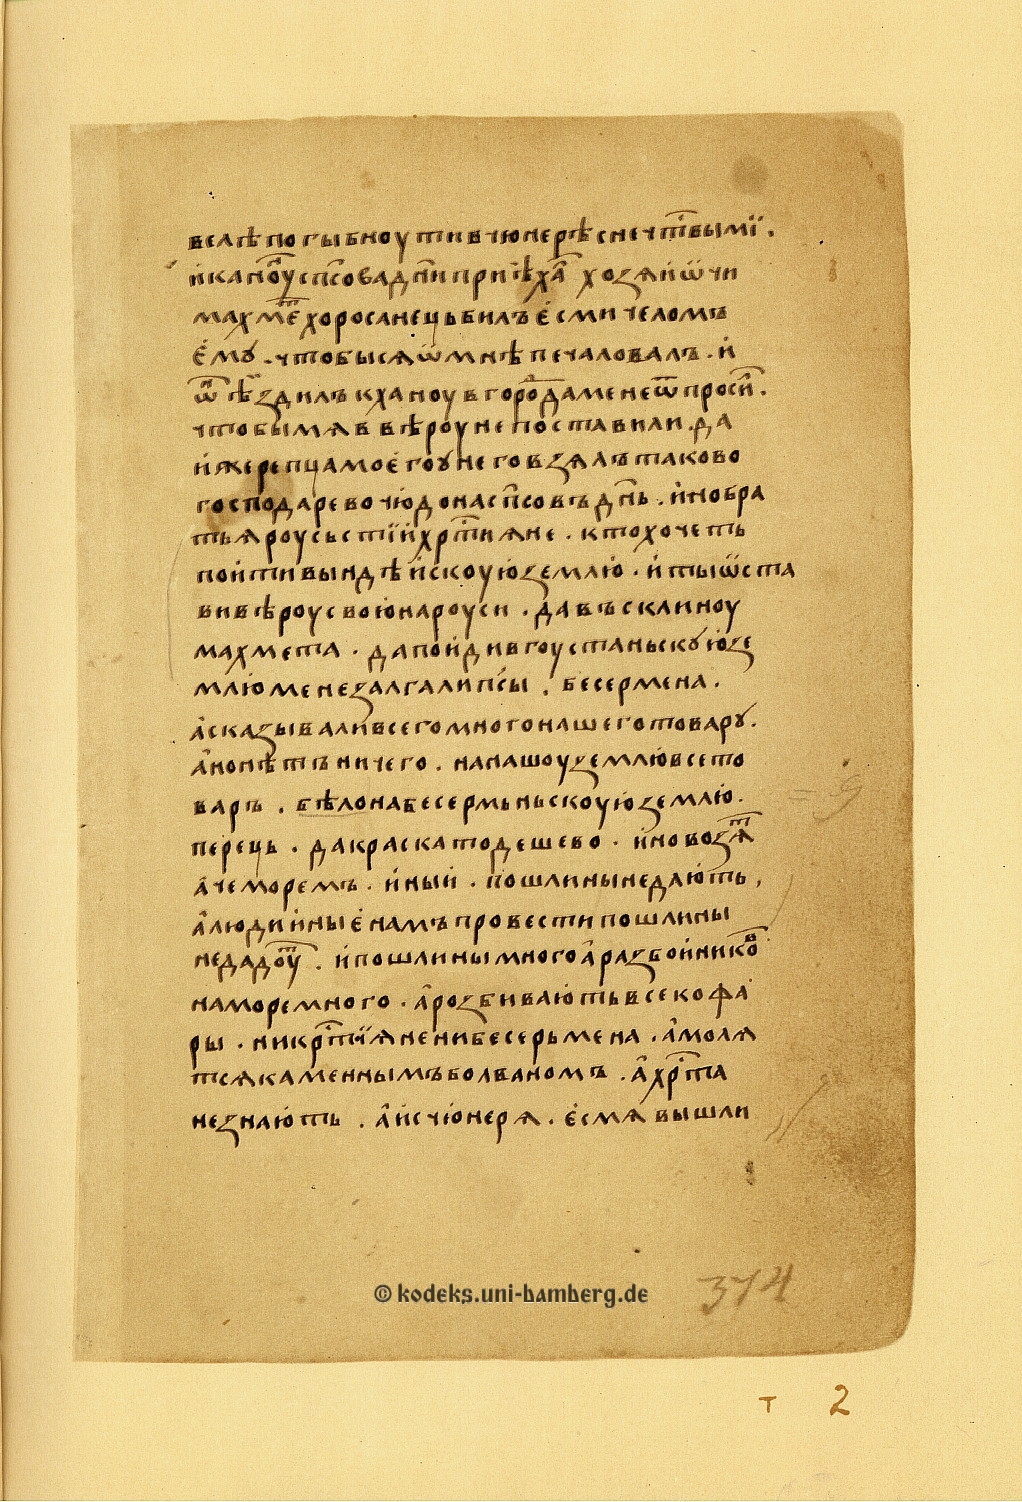 велѣ погыбноути в чюнерѣ с нечⷭ҇тївыми .
и канѡⷩ҇у спⷭ҇сова дн҃и приѣхаⷧ҇ хозяиѡчи
махмеⷮ хоросанець билъ есми челомъ
емꙋ . чтобы ся ѡ мнѣ печаловалъ . и
ѡⷩ҇ ѣздилъ к хану в гороⷣ да мене ѿпросиⷧ҇ .
чтобы мя в вѣроу не поставили . да
и жерепца моего у него взялъ таково
господарево чюдо на спⷭ҇совъ дн҃ь . ино бра
тья роусьстїи хрⷭ҇тияне . кто хочеть
поити в ындѣискоую землю . и ты ѡста
ви вѣроу свою на роуси . да въскликноу
махмета . да поиди в гоустаньскꙋю зе
млю мене залгали пⷭ҇сы . бесермена .
а сказывали всего много нашего товарꙋ .
ано нѣтъ ничего . на нашоу землю все то
варъ . бѣлои на бесерьмьньскоую землю .
перець . да краска то дешево . ино возяⷮ
аче моремъ . иныи . пошлины не дають ,
а люди иные намъ провести пошлины
не дадоуⷮ . и пошлины много а разбоиникоⷡ
на море много . а розбивають все кофа
ры . ни крⷭ҇тїяне ни бесерьмена . а моля
тся каменнымъ болваномъ . а хрⷭ҇та
не знають . а ис чюнеря . есмя вышли
© kodeks.uni-bamberg.de
374
т 2